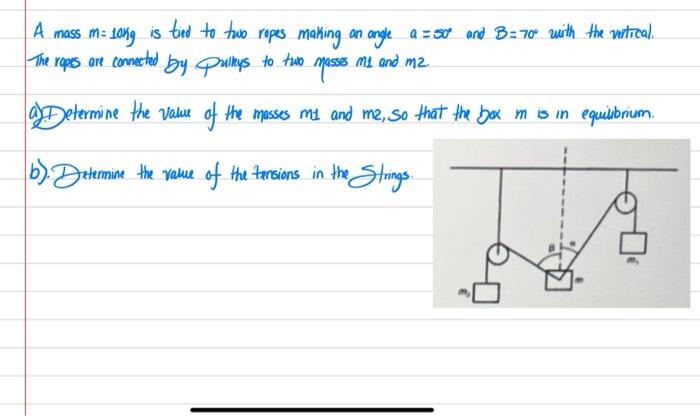 A mass m=10kg is tied to two ropes making an angle a=50° and B=70° with the vertical.
The ropes are connected by pulleys to two masses m1 and m2.
a). Determine the value of the masses m1 and m2, so that the box m is in equilibrium.
b). Determine the value of the tensions in the Strings.
β α
m₁
m
m₂